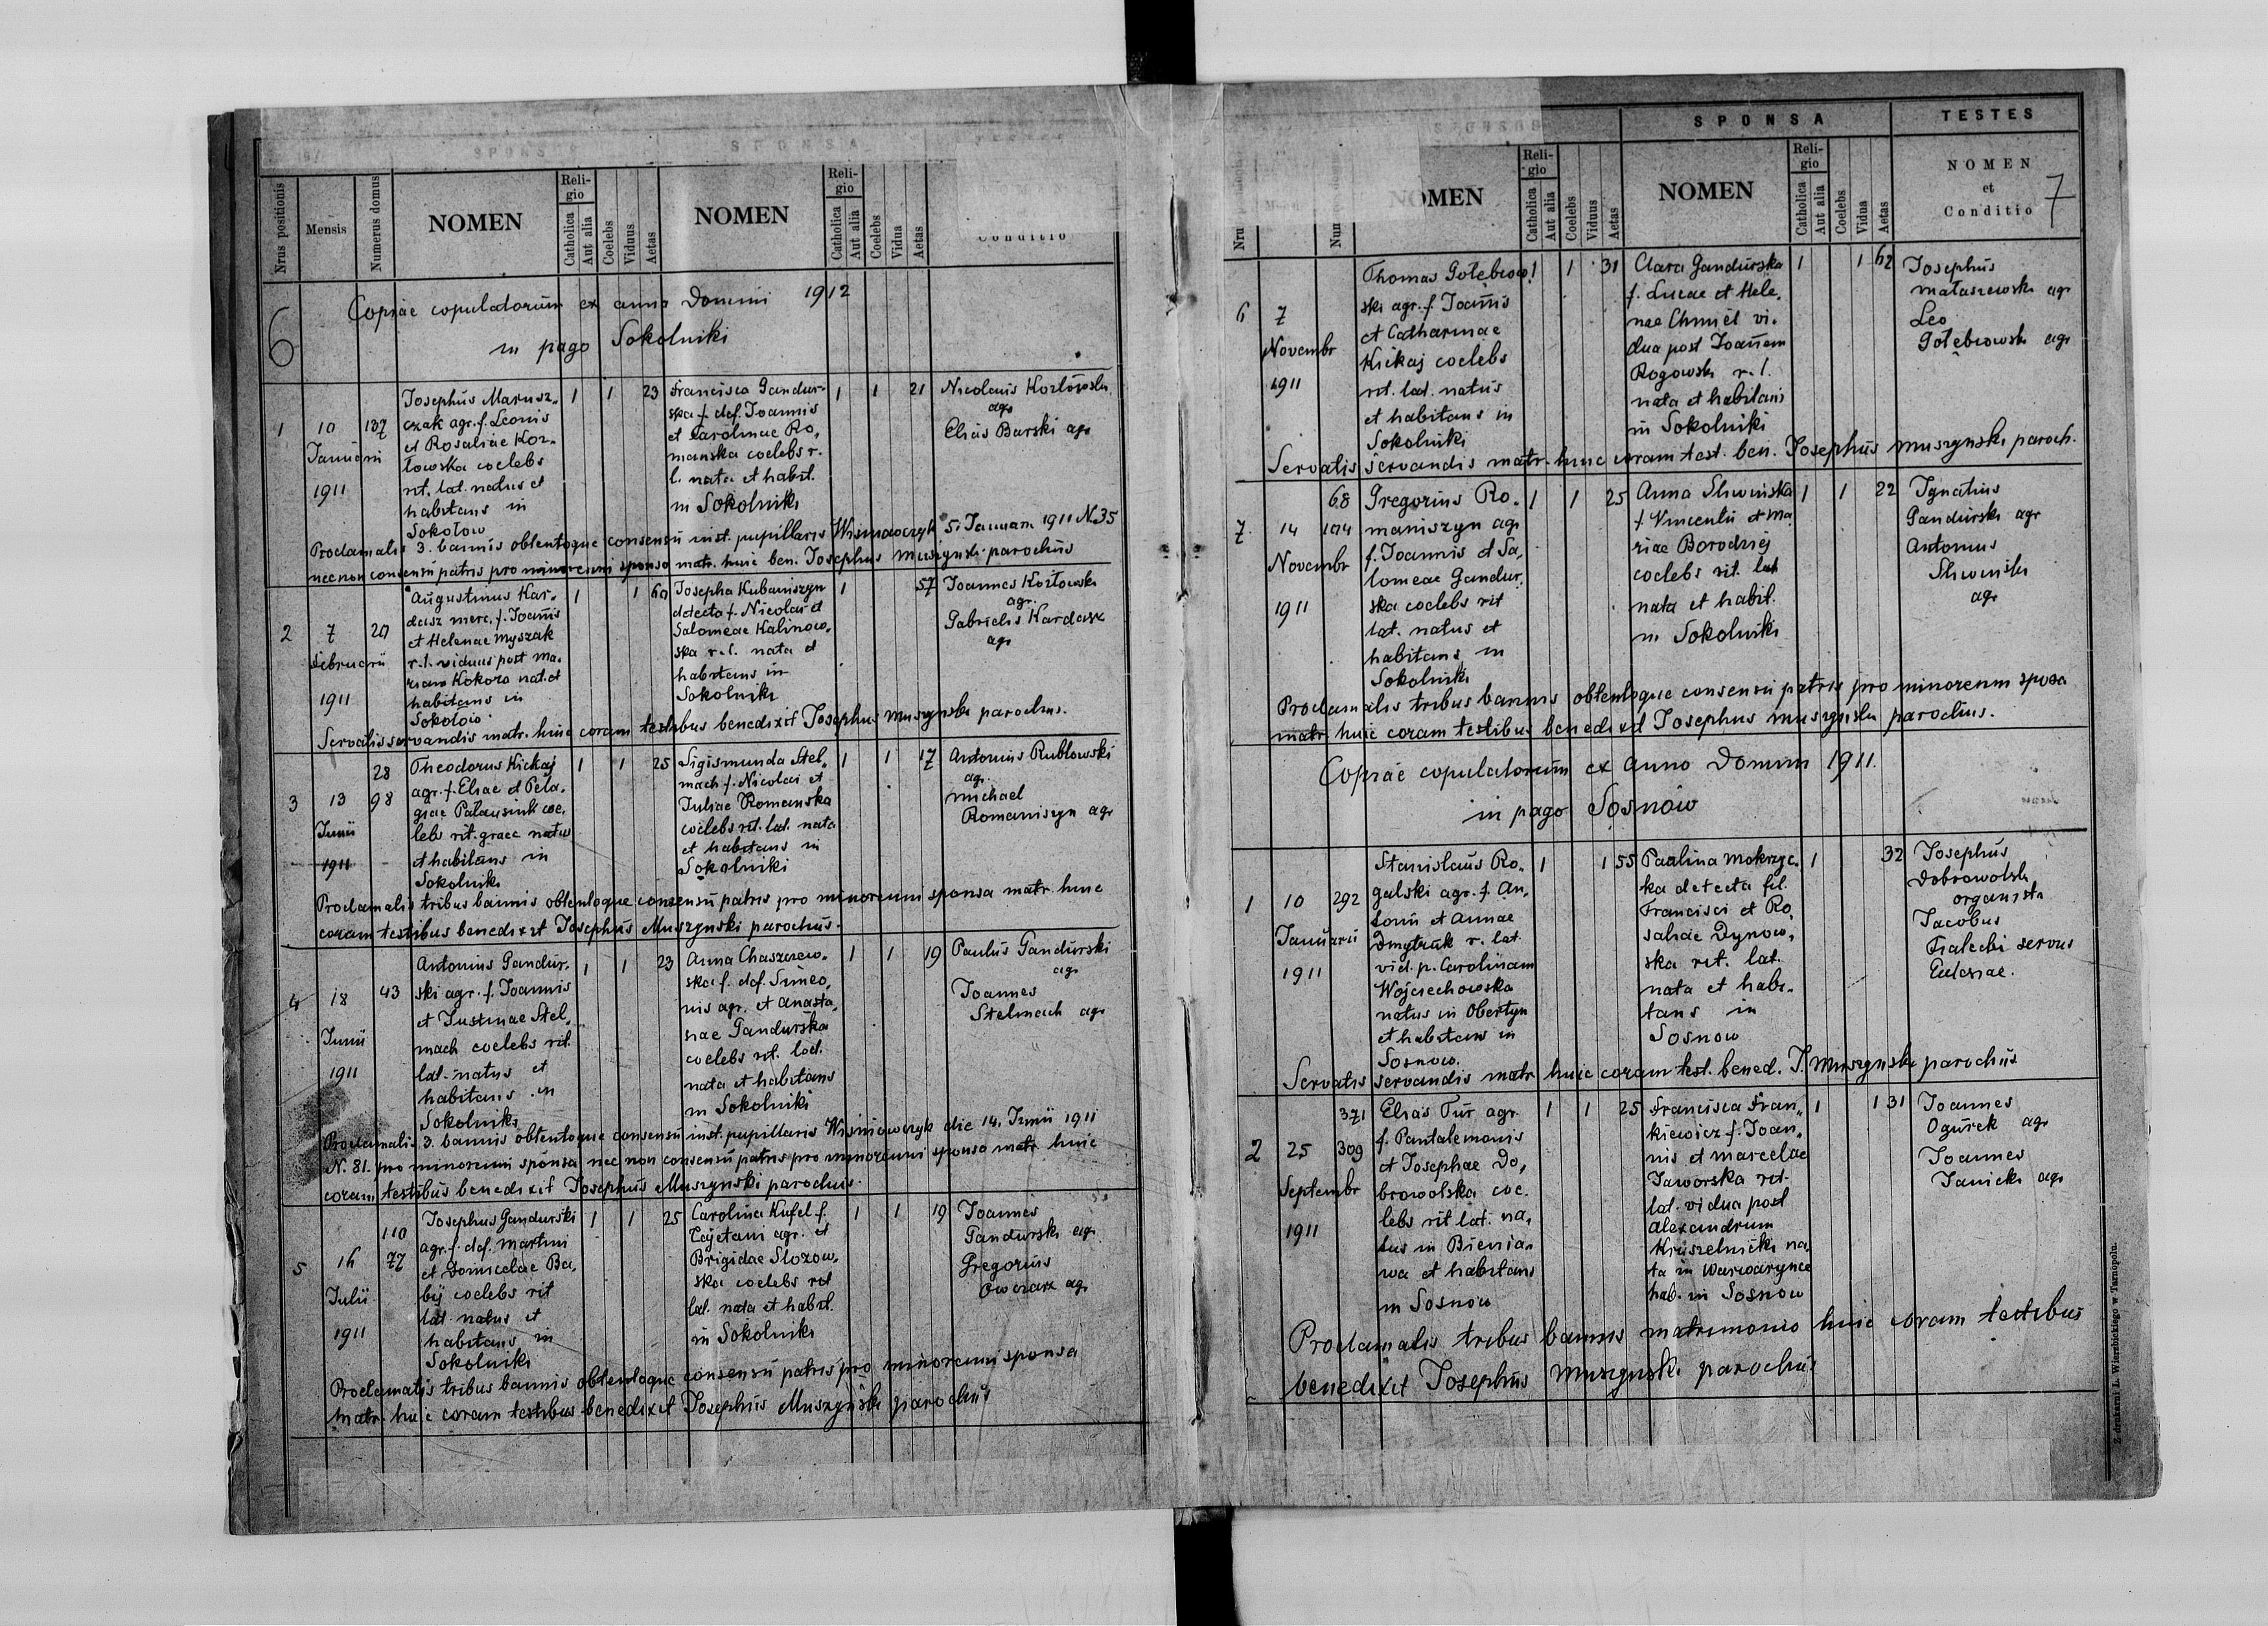 SPONSUS
SPONSA
Nrus positionis
Mensis
Numerus domus
NOMEN
Reli-
gio
Catholica
Aut alia
Coelebs
Viduus
Aetas
NOMEN
Reli-
gio
Catholica
Aut alia
Coelebs
Vidua
Aetas
Conditio
6
Copiae copulatorum ex anno Domini 1912
in pago Sokolniki
1
10
Januarii
1911
137
Josephus Marusz„
czak agr. f. Leonis
et Rosaliae Koz-
łowska coelebs
rit. lat. natus et
habitans in
Sokołow
1 1 23
Francisca Gandur-
ska f. def. Joannis
et Carolinae Ro„
manska coelebs r.
l. nata et habit.
in Sokolniki
1 1 21
Nicolaus Kozłowski
agr
Elias Barski agr
Proclamatis 3. bannis obtentoque consensu inst. pupillaris Wisniowczyk 5. Januari 1911 N. 35
necnon consensu patris pro minorenni sponso matr. huic ben. Josephus Muszynski parochus
2
7
Februarii
1911
Augustinus Kar„
dasz merc. f. Joannis
et Helenae Myszak
r. l. viduus post Ma„
riam Kokora nat. et
habitans in
Sokołow
1 1
Josepha Kubaniszyn
detecta f. Nicolai et
Salomeae Kalinow„
ska r. l. nata et
habitans in
Sokolniki
1 57
Joannes Kozłowski
agr.
Gabrielis Kardasz
agr
Servatis servandis matr. huic coram testibus benedixit Josephus Muszynski parochus.
3
13
Junii
1911
28
98
Theodorus Kickaj
agr. f. Eliae et Pela„
giae Patausink coe„
lebs rit. graec natus
et habitans in
Sokolniki
1 1 25
Sigismunda Stel„
mach f. Nicolai et
Juliae Romanska
coelebs rit. lat. nata
et habitans in
Sokolniki
1 1 17
Antonius Rubłowski
agr.
Michael
Romaniszyn agr
Proclamatis tribus bannis obtentoque consensu patris pro minorenni sponsa matr. huic
coram testibus benedixit Josephus Muszynski parochus.
4
18
Junii
1911
43
Antonius Gandur„
ski agr. f. Joannis
et Justinae Stel„
mach coelebs rit.
lat. natus et
habitans in
Sokolniki
1 1 23
Anna Chaszczew„
ska f. def. Simeo„
nis agr. et Anasta„
siae Gandurska
coelebs rit. lat.
nata et habitans
in Sokolniki
1 1 19
Paulus Gandurski
agr
Joannes
Stelmach agr
Proclamatis 3. bannis obtentoque consensu inst. pupillaris Wisniowczyk die 14. Junii 1911
N. 81. pro minorenni sponsa nec non consensu patris pro minorenni sponsa matr. huic
coram testibus benedixit Josephus Muszynski parochus.
5
16
Julii
1911
110
77
Josephus Gandurski
agr. f. def. Martini
et Domicelae Ba„
bij coelebs rit
lat. natus et
habitans in
Sokolniki
1 1 25
Carolina Kufel f.
Cajetani agr. et
Brigidae Slozow„
ska coelebs rit
lat. nata et habit.
in Sokolniki
1 1 19
Joannes
Gandurski agr
Gregorius
Owczarz agr
Proclamatis tribus bannis obtentoque consensu patris pro minorenni sponsa
matr. huic coram testibus benedixit Josephus Muszynski parochus
SPONSUS
SPONSA
TESTES
NOMEN
Reli-
gio
Catholica
Aut alia
Coelebs
Viduus
Aetas
NOMEN
Reli-
gio
Catholica
Aut alia
Coelebs
Vidua
Aetas
NOMEN
et
Conditio
7
6
7
Novembr
1911
Thomas Gołębiow„
ski agr. f. Joannis
et Catharinae
Kickaj coelebs
rit. lat. natus
et habitans in
Sokolniki
1 1 31
Clara Gandurska
f. Lucae et Hele„
nae Chmiel vi„
dua post Joannem
Rogowski r. l.
nata et habitans
in Sokolniki
1 1 62
Josephus
Mataszewski agr
Leo
Gołębiowski agr
Servatis servandis matr. huic coram test. ben. Josephus Muszynski paroch.
7
14
Novembr
1911
68
Gregorius Ro„
maniszyn agr
f. Joannis et Sa„
lomeae Gandur„
ska coelebs rit
lat. natus et
habitans in
Sokolniki
1 1 25
Anna Sliwinska
f. Vincentii et Ma„
riae Borodziej
coelebs rit. lat
nata et habit.
in Sokolniki
1 1 22
Ignatius
Gandurski agr
Antonius
Sliwinski
agr
Proclamatis tribus bannis obtentoque consensu patris pro minorenni sponsa
matr. huic coram testibus benedixit Josephus Muszynski parochus.
Copiae copulatorum ex anno Domini 1911.
in pago Sosnów
1
10
Januarii
1911
292
Stanislaus Ro„
galski agr. f. An„
tonii et Annae
Dmytruk r. lat.
vid. p. Carolinam
Wojciechowska
natus in Obertyn
et habitans in
Sosnow.
1 1 55
Paulina Mokrzyc„
ka detecta fil.
Francisci et Ro„
saliae Dynow„
ska rit. lat.
nata et habi„
tans in
Sosnow
1 32
Josephus
Dobrowolski
organista
Jacobus
Fiałecki servus
Eclesiae.
Servatis servandis matr. huic coram test. bened. J. Muszynski parochus
2
25
Septembr
1911
371
309
Elias Tur agr.
f. Pantalemonis
et Josephae Do„
browolska coe„
lebs rit lat. na„
tus in Bienia„
wa et habitans
in Sosnow
1 1 25
Francisca Fran„
kiewicz f. Joan„
nis et Marcelae
Jaworska rit.
lat. vidua post
Alexandrum
Kruszelnicki na„
ta in Warwarynce
hab. in Sosnow
1 1 31
Joannes
Ogurek agr
Joannes
Janicki agr
Proclamatis tribus bannis matrimonio huic coram testibus
benedixit Josephus Muszynski parochus
Z drukarni L. Wierzbickiego w Tarnopolu.